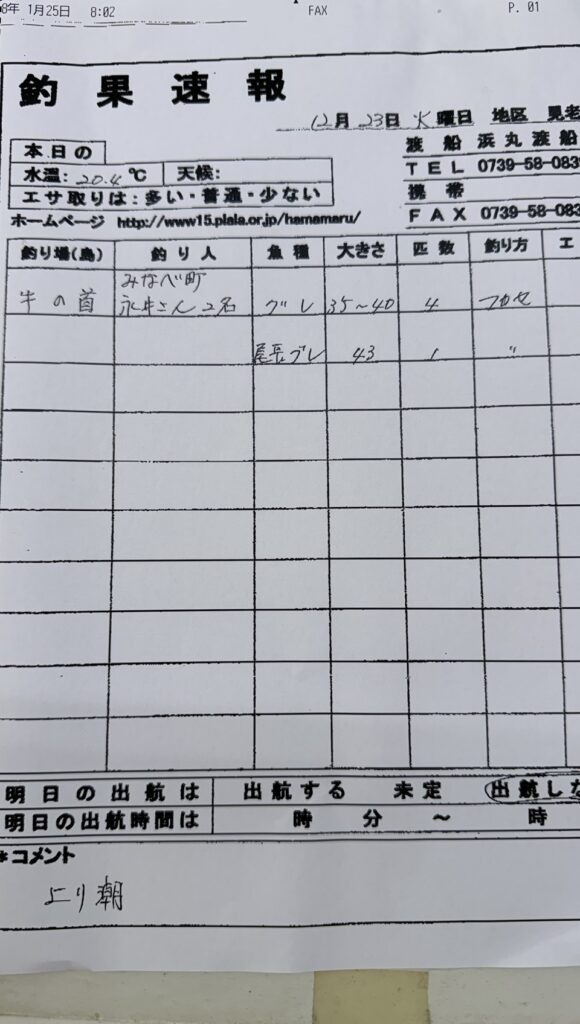 8年 1月25日 8:02 FAX P. 01
釣果速報
12月 23日 火曜日 地区 見老
本日の
渡船 浜丸渡船
水温: 20.4 ℃ 天候:
TEL 0739-58-083
エサ取りは:多い・普通・少ない
携帯
ホームページ http://www15.plala.or.jp/hamamaru/
FAX 0739-58-083
釣り場(島) 釣り人 魚種 大きさ 匹数 釣り方 エ
みなべ町
牛の首 永井さん 2名 グレ 35～40 4 フカセ
尾長グレ 43 1 〃
明日の出航は 出航する 未定 出航しな
明日の出航時間は 時 分 ～ 時
*コメント
上り潮